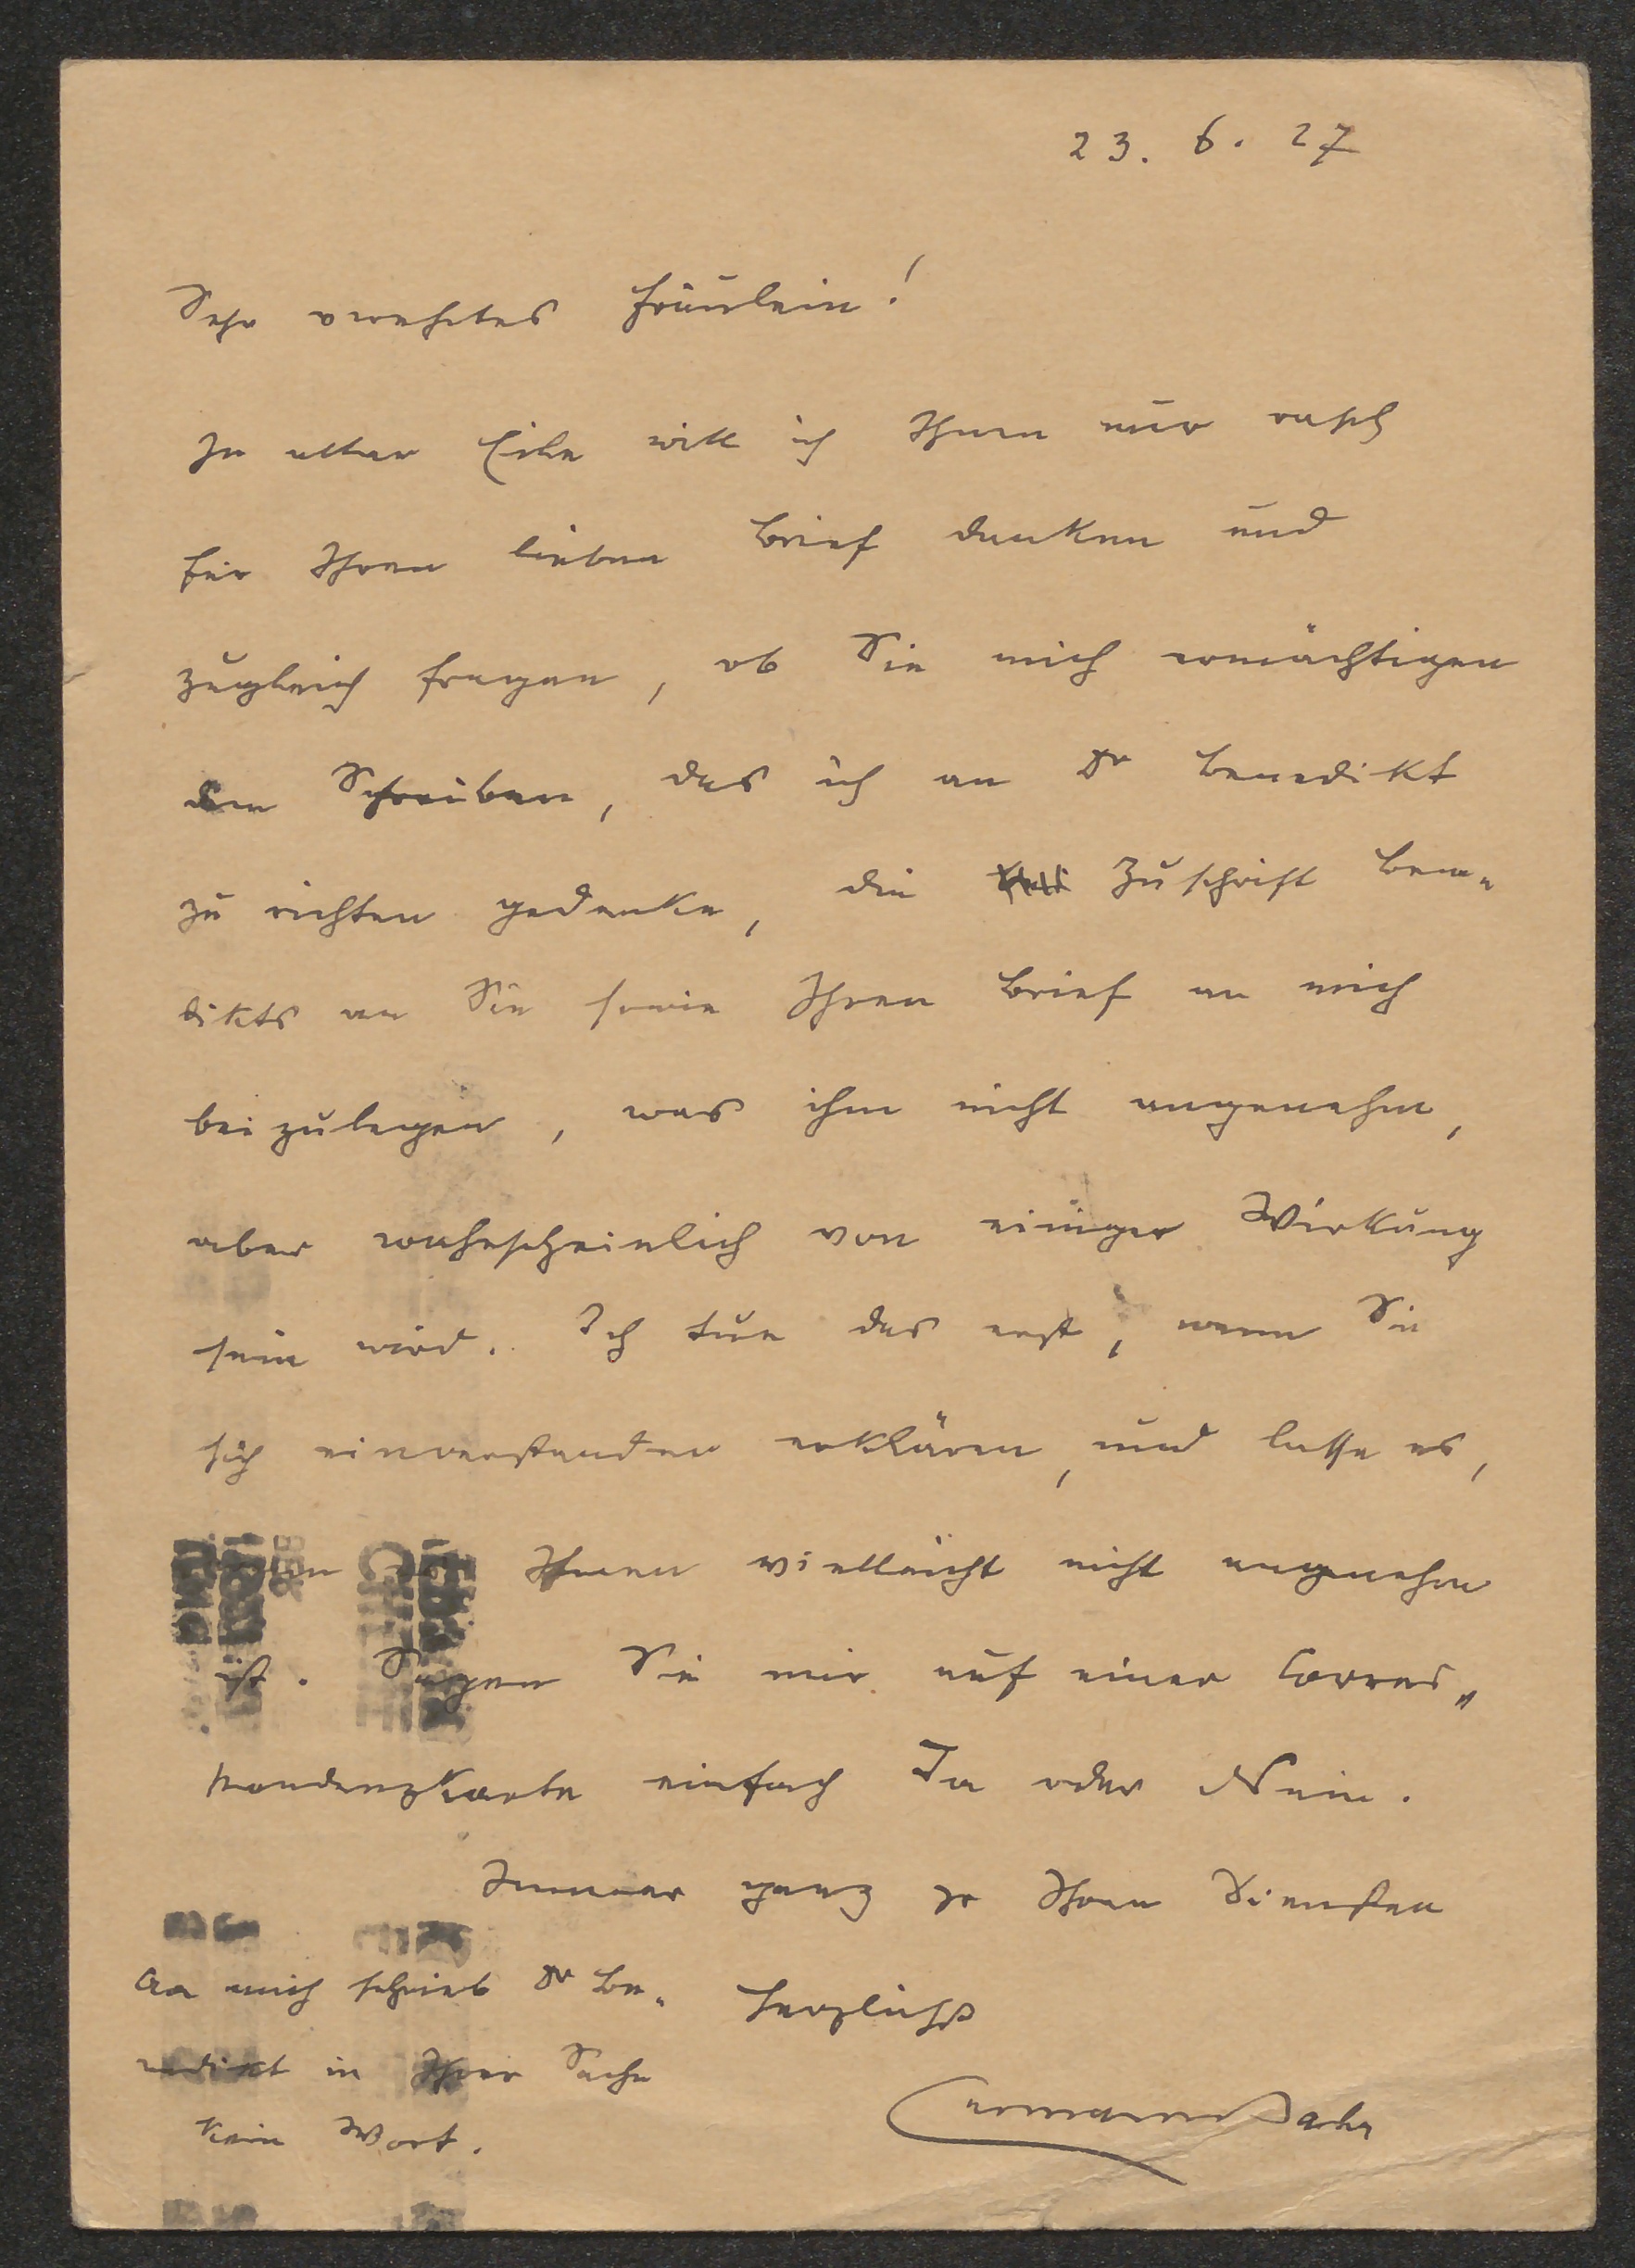 23. 6. 27
Sehr verehrtes Fräulein!
In aller Eile will ich Ihnen nur rasch
für Ihren lieben Brief danken und
zugleich fragen, ob Sie mich ermächtigen
dem Schreiben, das ich an Dr Benedikt
zu richten gedenke, die Zuschrift Bene-
dikts an Sie sowie Ihren Brief an mich
beizulegen, was ihm nicht angenehm,
aber wahrscheinlich von einiger Wirkung
sein wird. Ich tue das erst, wenn Sie
sich einverstanden erklären, und lasse es,
Ihnen vielleicht nicht angenehm
ist. Sagen Sie mir auf einer Corres-
pondenzkarte einfach Ja oder Nein.
Immer ganz zu Ihren Diensten
herzlichst
Hermann Bahr
An mich schrieb Dr Be-
nedikt in Ihrer Sache
kein Wort.